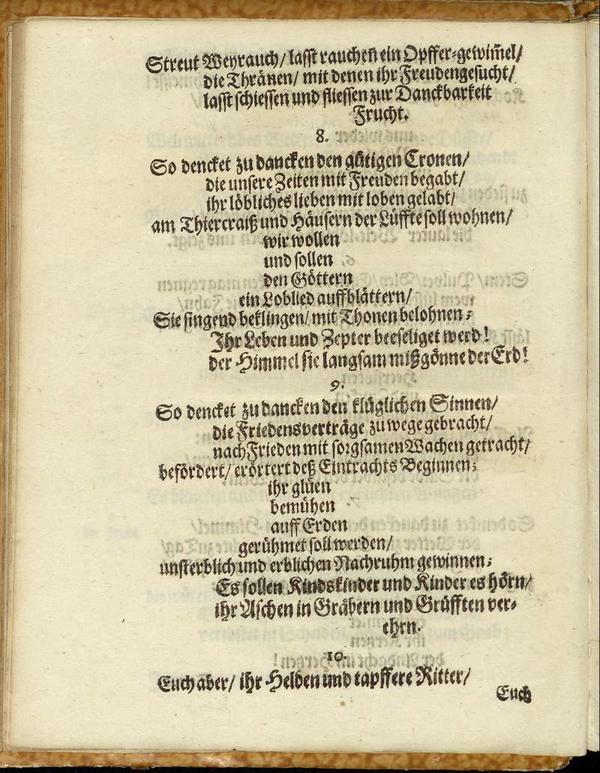 Streut Weyrauch/ lasst rauchen ein Opffer-gewim̃el/
die Thränen/ mit denen ihr Freudengesucht/
lasst schiessen und fliessen zur Danckbarkeit
Frucht.
8.
So dencket zu dancken den gütigen Cronen/
die unsere Zeiten mit Freuden begabt/
ihr löbliches lieben mit loben gelabt/
am Thiercraiß und Häusern der Lüffte soll wohnen/
wir wollen
und sollen
den Göttern
ein Loblied auffblättern/
Sie singend beklingen/ mit Thonen belohnen;
Ihr Leben und Zepter beeseliget werd!
der Himmel sie langsam mißgönne der Erd!
9.
So dencket zu dancken den klüglichen Sinnen/
die Friedensverträge zu wege gebracht/
nach Frieden mit sorgsamen Wachen getracht/
befördert/ erörtert deß Eintrachts Beginnen;
ihr glüen
bemühen
auff Erden
gerühmet soll werden/
unsterblich und erblichen Nachruhm gewinnen;
Es sollen Kindskinder und Kinder es hörn/
ihr Aschen in Gräbern und Grüfften ver-
ehrn.
10.
Euch aber/ ihr Helden und tapffere Ritter/
Euch